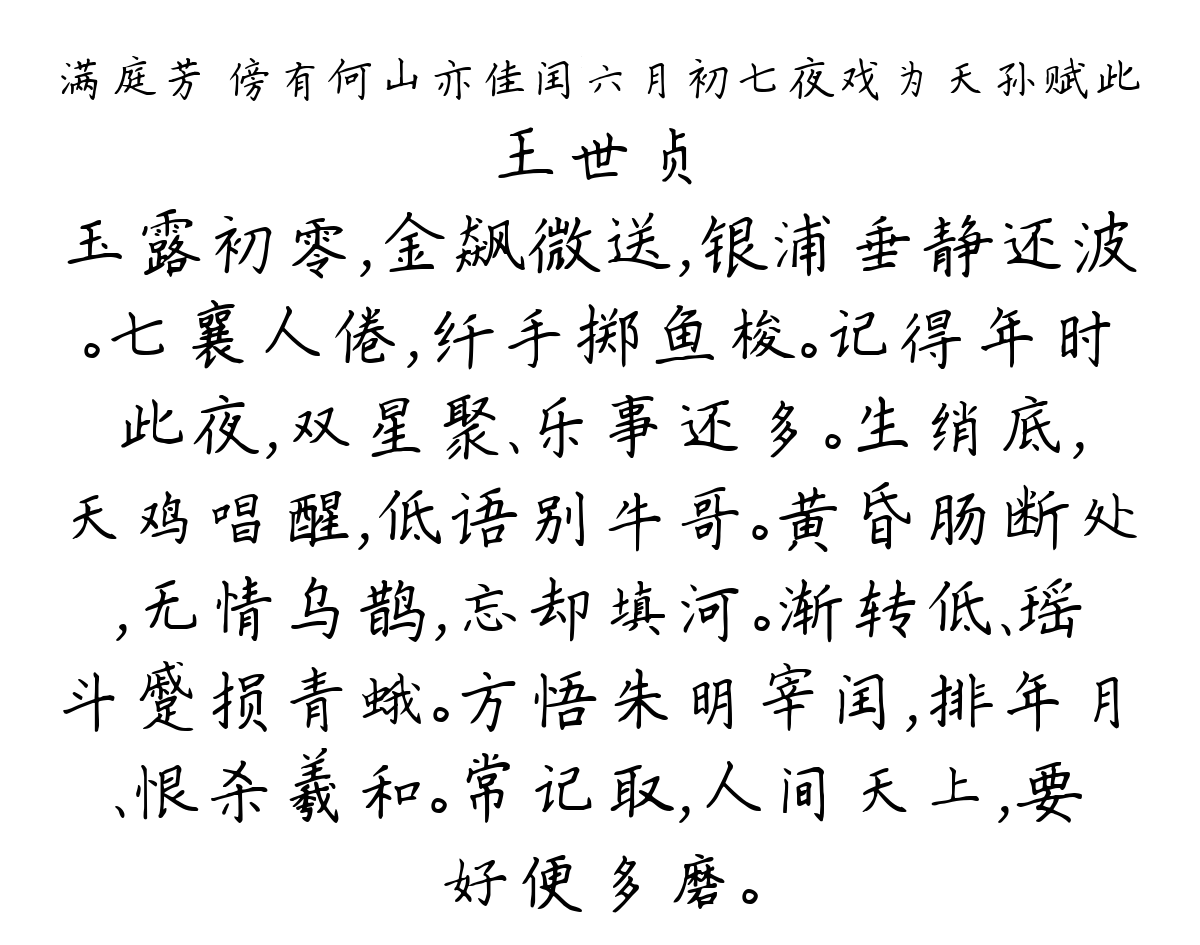 满庭芳 傍有何山亦佳闰六月初七夜戏为天孙赋此
王世贞
玉露初零,金飙微送,银浦垂静还波
。七襄人倦,纤手掷鱼梭。记得年时
此夜,双星聚、乐事还多。生绡底,
天鸡唱醒,低语别牛哥。黄昏肠断处
,无情乌鹊,忘却填河。渐转低、瑶
斗蹙损青蛾。方悟朱明宰闰,排年月
、恨杀羲和。常记取,人间天上,要
好便多磨。